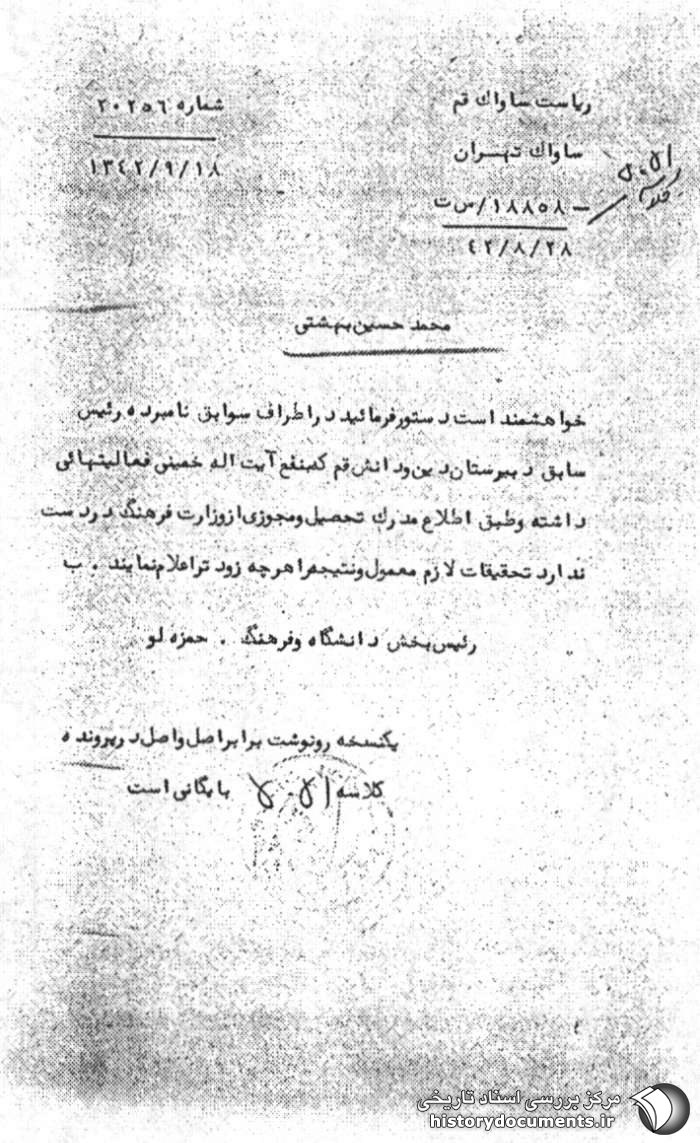 ریاست ساواک قم
شماره ۲۰۲۵۶
ساواک تهران
۱۳۴۲/۹/۱۸
۱۸۸۵۸/س ت
۴۲/۸/۲۸
محمد حسین بهشتی
خواهشمند است دستور فرمائید در اطراف سوابق نامبرده رئیس
سابق دبیرستان دین و دانش قم که بنفع آیت اله خمینی فعالیتهائی
داشته و طبق اطلاع مدرک تحصیل و مجوزی از وزارت فرهنگ در دست
ندارد تحقیقات لازم معمول و نتیجه را هر چه زود تر اعلام نمایند . ب
رئیس بخش دانشگاه و فرهنگ . حمزه لو
یکنسخه رونوشت برابر اصل و اصل در پرونده
کلاسه بایگانی است
مرکز بررسی اسناد تاریخی
historydocuments.ir